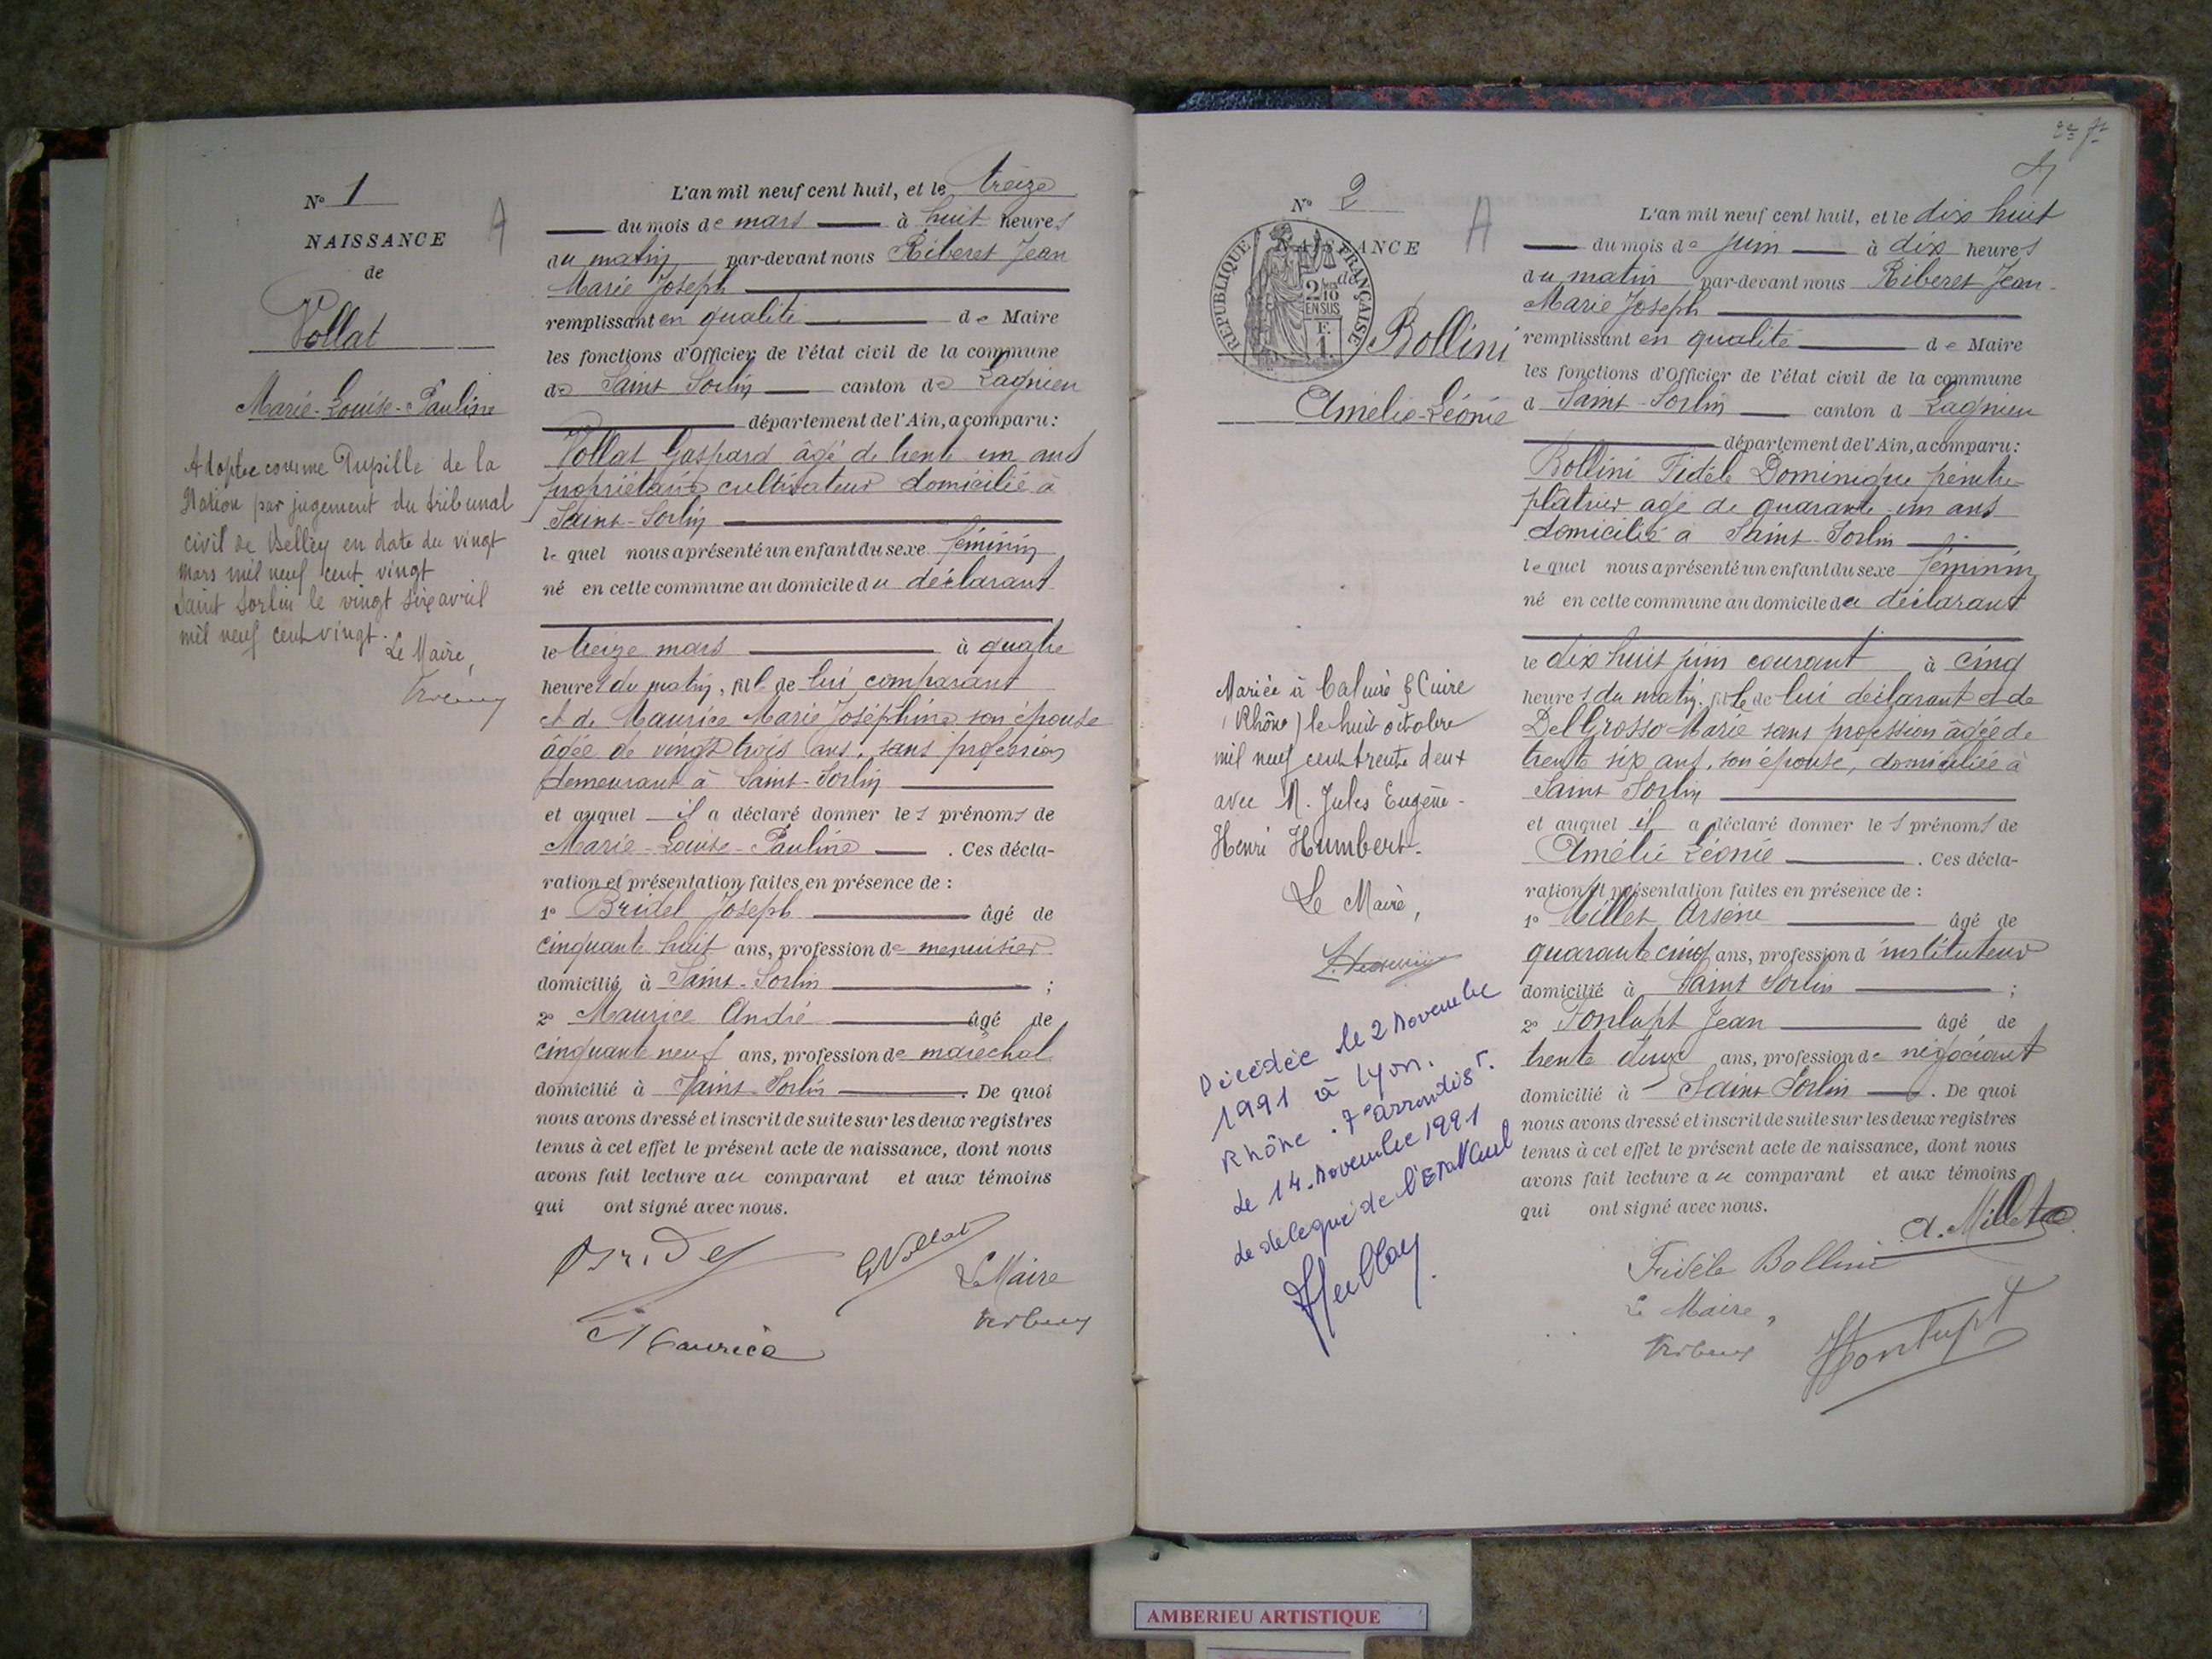 N° 1
NAISSANCE
de
Vollat
Marie-Louise-Pauline
Adoptée comme Pupille de la
Nation par jugement du tribunal
civil de Belley en date du vingt
mars mil neuf cent vingt
Saint Sorlin le vingt six avril
mil neuf cent vingt.
Le Maire,
A
L'an mil neuf cent huit, et le treize
du mois de mars à huit heures
du matin par-devant nous Riberet Jean
Marie Joseph
remplissant en qualité de Maire
les fonctions d'Officier de l'état civil de la commune
de Saint Sorlin canton de Lagnieu
département de l'Ain, a comparu :
Vollat Gaspard âgé de trente un ans
propriétaire cultivateur domicilié à
Saint-Sorlin
lequel nous a présenté un enfant du sexe féminin
né en cette commune au domicile du déclarant
le treize mars à quatre
heures du matin, fille de lui comparant
et de Maurice Marie Joséphine son épouse
âgée de vingt trois ans, sans profession
demeurant à Saint-Sorlin
et auquel il a déclaré donner les prénoms de
Marie-Louise-Pauline . Ces décla-
ration et présentation faites en présence de :
1° Bridel Joseph âgé de
cinquante huit ans, profession de menuisier
domicilié à Saint-Sorlin ;
2° Maurice André âgé de
cinquante neuf ans, profession de maréchal
domicilié à Saint-Sorlin . De quoi
nous avons dressé et inscrit de suite sur les deux registres
tenus à cet effet le présent acte de naissance, dont nous
avons fait lecture au comparant et aux témoins
qui ont signé avec nous.
Bridel
G Vollat
Le Maire
Maurice
N° 2
NAISSANCE
de
RÉPUBLIQUE FRANÇAISE
2/10
EN SUS
F.
1
Bollini
Amélie-Léonie
Mariée à Caluire & Cuire
(Rhône) le huit octobre
mil neuf cent trente deux
avec M. Jules Eugène-
Henri Humbert.
Le Maire,
Décédée le 2 Novembre
1991 à Lyon.
Rhône . 7e arrondist.
Le 14 Novembre 1991
Le délégué de l'Etat Civil
A
L'an mil neuf cent huit, et le dix huit
du mois de juin à dix heures
du matin par-devant nous Riberet Jean-
Marie Joseph
remplissant en qualité de Maire
les fonctions d'Officier de l'état civil de la commune
d Saint-Sorlin canton d Lagnieu
département de l'Ain, a comparu :
Bollini Fidèle Dominique peintre-
plâtrier agé de quarante-un ans
domicilié à Saint-Sorlin
lequel nous a présenté un enfant du sexe féminin
né en cette commune au domicile du déclarant
le dix huit juin courant à cinq
heures du matin, fille de lui déclarant et de
Del Grosso Marie sans profession âgée de
trente six ans, son épouse, domiciliée à
Saint Sorlin
et auquel il a déclaré donner les prénoms de
Amélie Léonie . Ces décla-
ration et présentation faites en présence de :
1° Millet Arsène âgé de
quarante cinq ans, profession d'instituteur
domicilié à Saint Sorlin ;
2° Fontupt Jean âgé de
trente deux ans, profession de négociant
domicilié à Saint Sorlin . De quoi
nous avons dressé et inscrit de suite sur les deux registres
tenus à cet effet le présent acte de naissance, dont nous
avons fait lecture au comparant et aux témoins
qui ont signé avec nous.
A. Millet
Fidèle Bollini
Le Maire,
Fontupt
AMBERIEU ARTISTIQUE